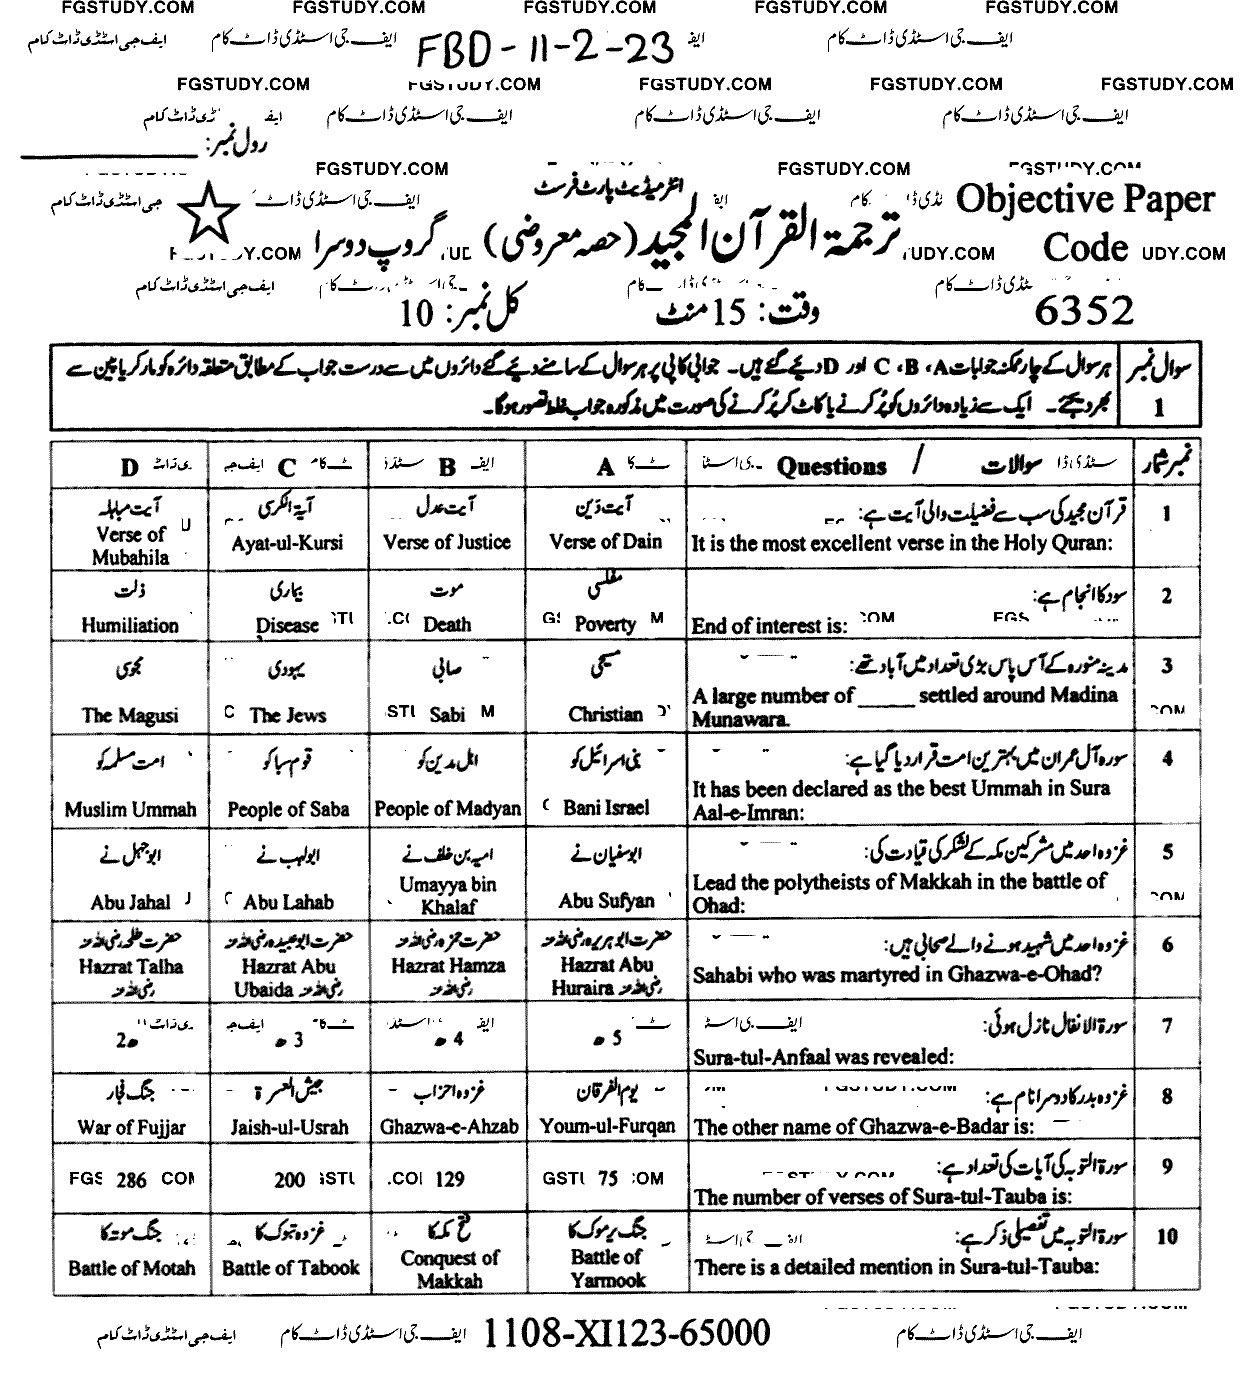 FGSTUDY.COM FGSTUDY.COM FGSTUDY.COM FGSTUDY.COM FGSTUDY.COM
ایف جی اسٹڈی ڈاٹ کام ایف جی اسٹڈی ڈاٹ کام FBD-11-2-23 ایف ایف جی اسٹڈی ڈاٹ کام
FGSTUDY.COM FGSTUDY.COM FGSTUDY.COM FGSTUDY.COM FGSTUDY.COM
ڈی ڈاٹ کام ایف ایف جی اسٹڈی ڈاٹ کام ایف جی اسٹڈی ڈاٹ کام ایف جی اسٹڈی ڈاٹ کام
رول نمبر:
FGSTUDY.COM FGSTUDY.COM FGSTUDY.COM
انٹرمیڈیٹ پارٹ فرسٹ
Objective Paper
ترجمۃ القرآن المجید (حصہ معروضی) گروپ دوسرا
Code
6352
وقت: 15 منٹ
کل نمبر: 10
سوال نمبر 1
ہر سوال کے چار ممکنہ جوابات A، B، C اور D دیئے گئے ہیں۔ جوابی کاپی پر ہر سوال کے سامنے دیئے گئے دائروں میں سے درست جواب کے مطابق متعلقہ دائرہ کو مارکر یا پین سے
بھر دیجئے۔ ایک سے زیادہ دائروں کو پُر کرنے یا کاٹ کر پُر کرنے کی صورت میں مذکورہ جواب غلط تصور ہوگا۔
D C B A Questions / سوالات نمبر شمار
آیت مباہلہ آیۃ الکرسی آیت عدل آیت دَین قرآن مجید کی سب سے فضیلت والی آیت ہے: 1
Verse of Mubahila Ayat-ul-Kursi Verse of Justice Verse of Dain It is the most excellent verse in the Holy Quran:
ذلت بیماری موت مفلسی سود کا انجام ہے: 2
Humiliation Disease Death Poverty End of interest is:
مجوسی یہودی صابی مسیحی مدینہ منورہ کے آس پاس بڑی تعداد میں آباد تھے: 3
The Magusi The Jews Sabi Christian A large number of _____ settled around Madina Munawara.
امت مسلمہ کو قوم سبا کو اہل مدین کو بنی اسرائیل کو سورہ آل عمران میں بہترین امت قرار دیا گیا ہے: 4
Muslim Ummah People of Saba People of Madyan Bani Israel It has been declared as the best Ummah in Sura Aal-e-Imran:
ابو جہل نے ابولہب نے امیہ بن خلف نے ابوسفیان نے غزوہ احد میں مشرکین مکہ کے لشکر کی قیادت کی: 5
Abu Jahal Abu Lahab Umayya bin Khalaf Abu Sufyan Lead the polytheists of Makkah in the battle of Ohad:
حضرت طلحہ رضی اللہ عنہ حضرت ابوعبیدہ رضی اللہ عنہ حضرت حمزہ رضی اللہ عنہ حضرت ابوہریرہ رضی اللہ عنہ غزوہ احد میں شہید ہونے والے صحابی ہیں: 6
Hazrat Talha رضی اللہ عنہ Hazrat Abu Ubaida رضی اللہ عنہ Hazrat Hamza رضی اللہ عنہ Hazrat Abu Huraira رضی اللہ عنہ Sahabi who was martyred in Ghazwa-e-Ohad?
2ھ 3ھ 4ھ 5ھ سورۃ الانفال نازل ہوئی: 7
Sura-tul-Anfaal was revealed:
جنگ فجار جیش العسرۃ غزوہ احزاب یوم الفرقان غزوہ بدر کا دوسرا نام ہے: 8
War of Fujjar Jaish-ul-Usrah Ghazwa-e-Ahzab Youm-ul-Furqan The other name of Ghazwa-e-Badar is:
286 200 129 75 سورۃ التوبہ کی آیات کی تعداد ہے: 9
The number of verses of Sura-tul-Tauba is:
جنگ موتہ کا غزوہ تبوک کا فتح مکہ کا جنگ یرموک کا سورۃ التوبہ میں تفصیلی ذکر ہے: 10
Battle of Motah Battle of Tabook Conquest of Makkah Battle of Yarmook There is a detailed mention in Sura-tul-Tauba:
ایف جی اسٹڈی ڈاٹ کام ایف جی اسٹڈی ڈاٹ کام 1108-XI123-65000 ایف جی اسٹڈی ڈاٹ کام